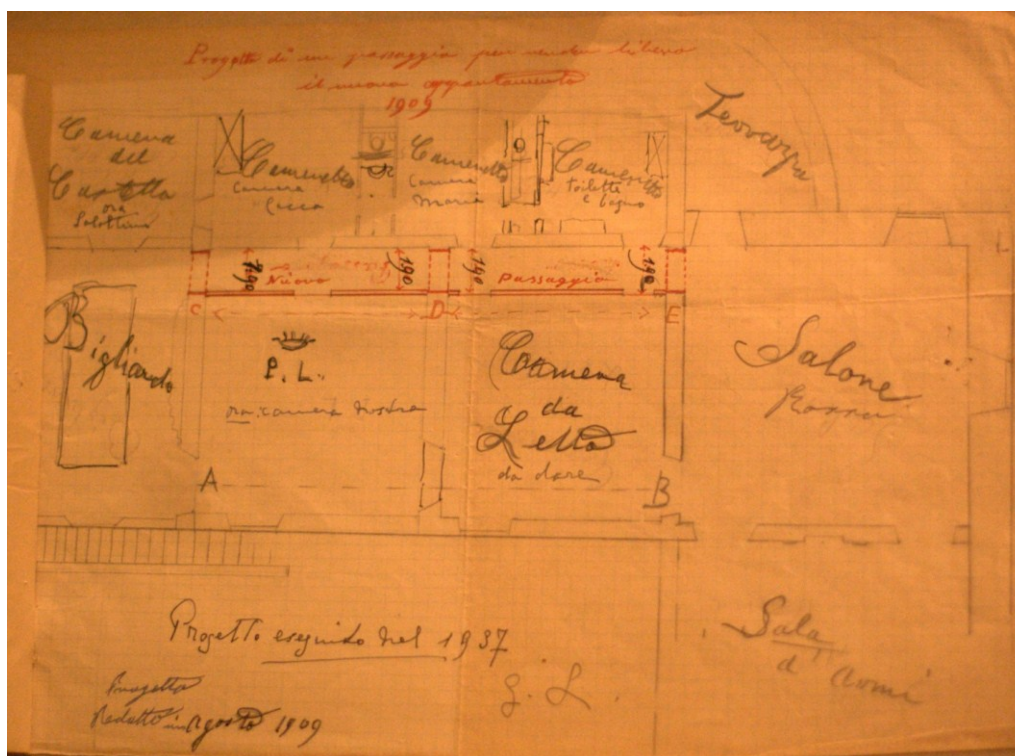 Progetto di un passaggio per render libero
il nuovo appartamento
1909
Camera
del
Castello
ora
Salottino
Cameretta
Camera
Cameretta
Camera
Maria
Cameretta
toilette
e bagno
Terrazza
190
Nuovo
190
190
Passaggio
190
C
D
E
Bigliardo
P. L.
ora camera nostra
Camera
da
Letto
da dare
Salone
Rosso
A
B
Progetto eseguito nel 1937
Progetto
Redatto in Agosto 1909
G. L.
Sala
d'Armi